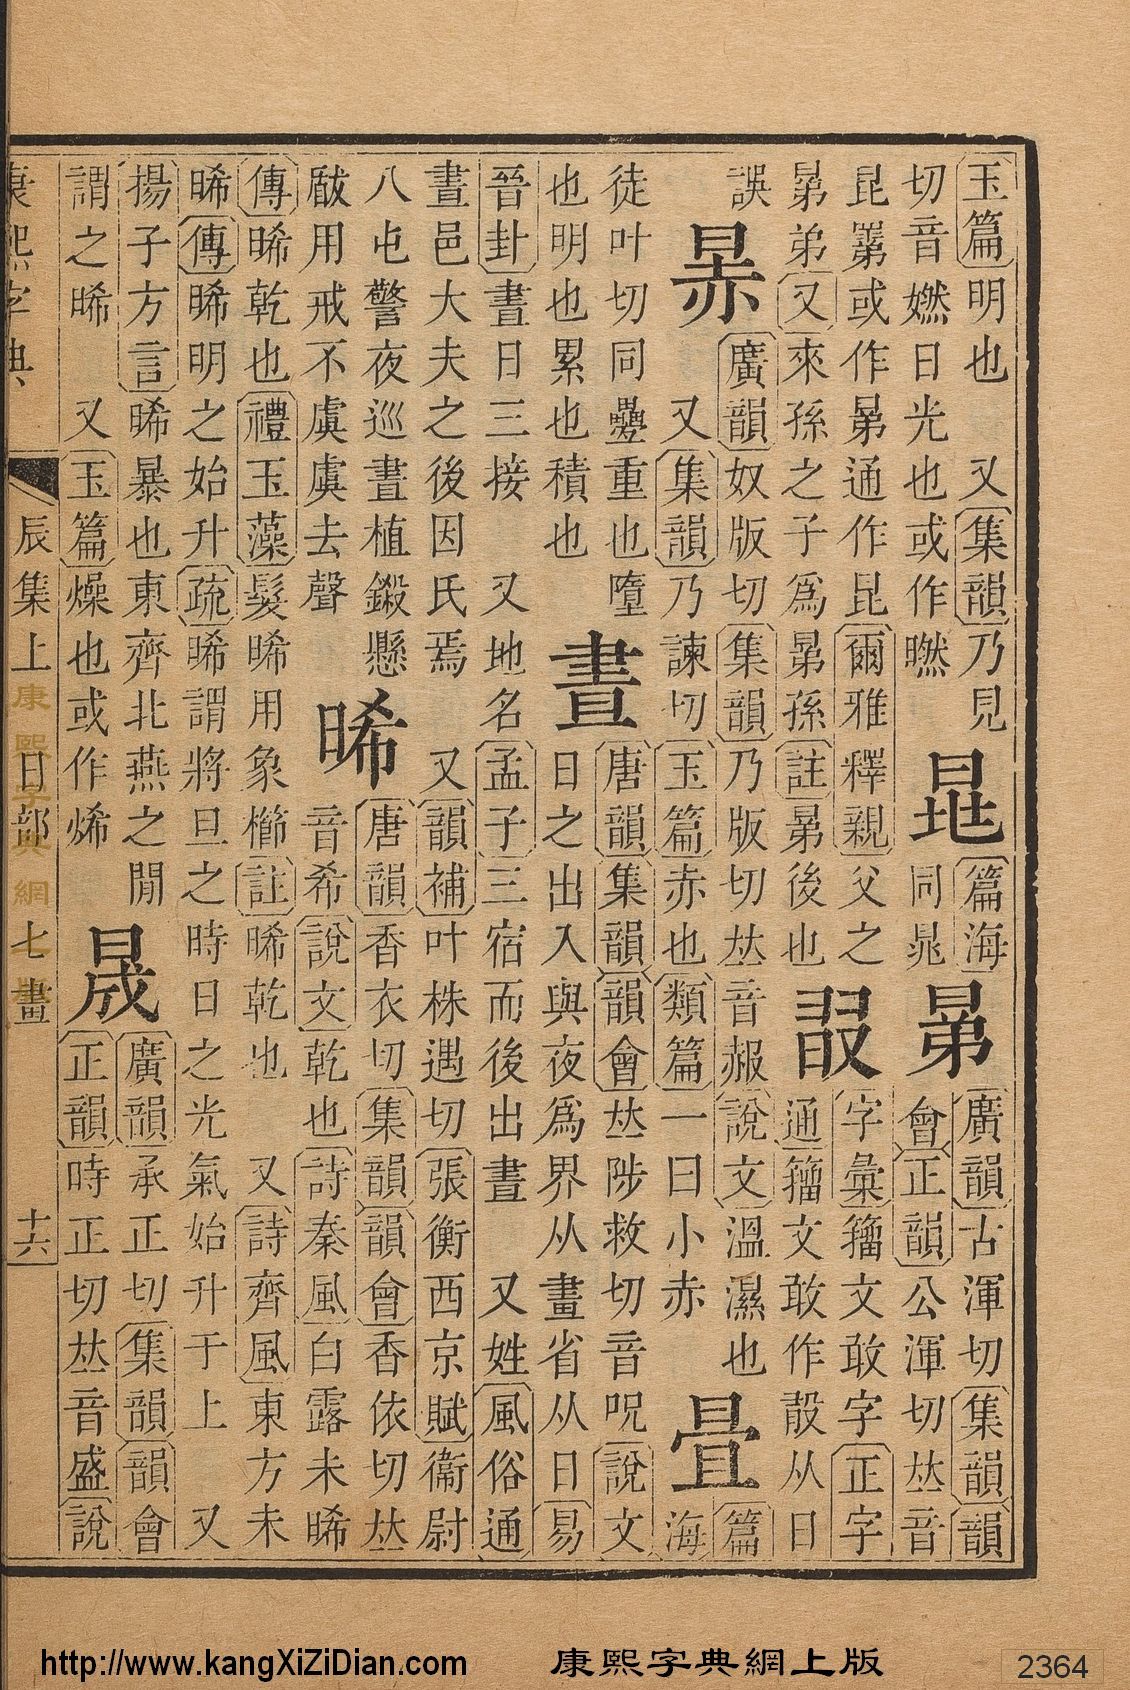 玉篇明也　又集韻乃見
切音㜣日光也或作㬗
𣆳
篇海
同晁
晜
廣韻古渾切集韻韻
會正韻公渾切𠀤音
昆䍖或作晜通作昆爾雅釋親父之
晜弟又來孫之子爲晜孫註晜後也
字彙籀文敢字正字
通籀文敢作㱿从日
誤
𣆀
廣韻奴版切集韻乃版切𠀤音赧說文溫濕也
又集韻乃諫切玉篇赤也類篇一曰小赤
篇
海
徒叶切同疊重也墮
也明也累也積也
晝
唐韻集韻韻會𠀤陟救切音呪說文
日之出入與夜爲界从畫省从日易
晉卦晝日三接　又地名孟子三宿而後出晝　又姓風俗通
晝邑大夫之後因氏焉　又韻補叶株遇切張衡西京賦衞尉
八屯警夜巡晝植鎩懸
瞂用戒不虞虞去聲
晞
唐韻香衣切集韻韻會香依切𠀤
音希說文乾也詩秦風白露未晞
傳晞乾也禮玉藻髮晞用象櫛註晞乾也　又詩齊風東方未
晞傳晞明之始升疏晞謂將旦之時日之光氣始升于上　又
揚子方言晞暴也東齊北燕之閒
謂之晞　又玉篇燥也或作烯
晟
廣韻承正切集韻韻會
正韻時正切𠀤音盛說
康熙字典　辰集上　日部　七畫　十六
康熙字典網七版
http://www.kangXiZiDian.com　康熙字典網上版　2364